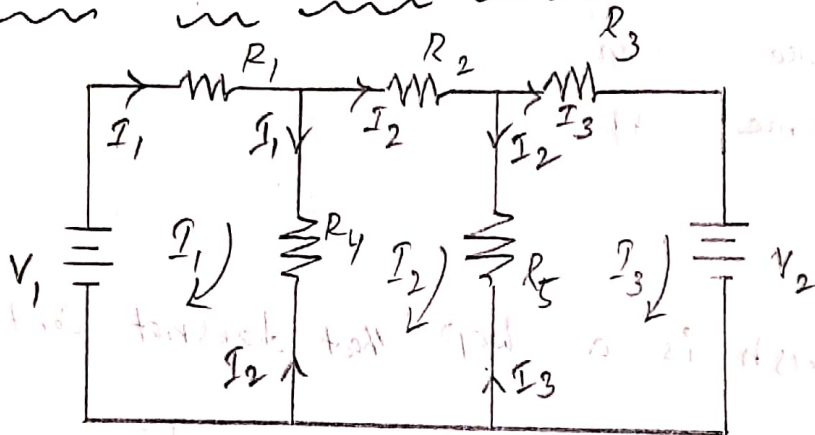 R1 R2 R3
I1 I1 I2 I2 I3
V1 I1 R4 I2 R5 I3 V2
I2 I3